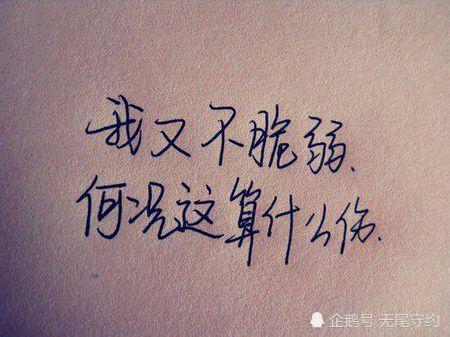 我又不脆弱、
何况这算什么伤、
企鹅号 无尾守约